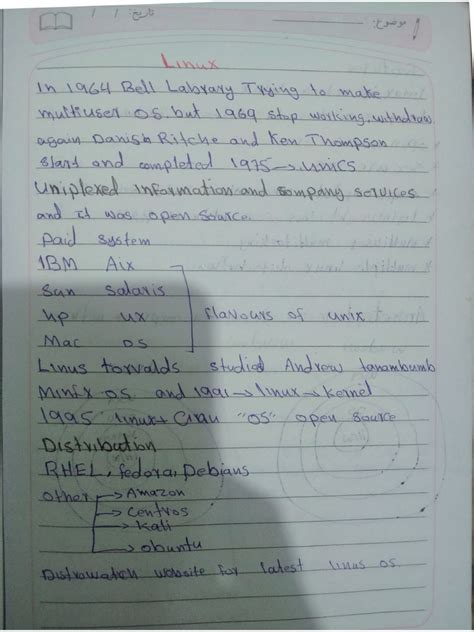 موضوع:
تاریخ: / /
Linux
In 1964 Bell Labrary Trying to make
multiuser OS. but 1969 stop working, withdraw
again Danish Ritche and Ken Thompson
start and completed 1975 → unics
Uniplexed Information and Company services
and it was open source.
Paid system
IBM Aix
Sun Salaris
Hp ux
flavours of unix
Mac os
Linus torvalds studied Andrew tanambumb
Minix OS and 1991 → linux → kernel
1995 linux + Gnu "OS" open source
Distribution
RHEL, fedora, Debians
other → Amazon
→ Centros
→ Kali
→ obuntu
Distrowatch website for latest linus os